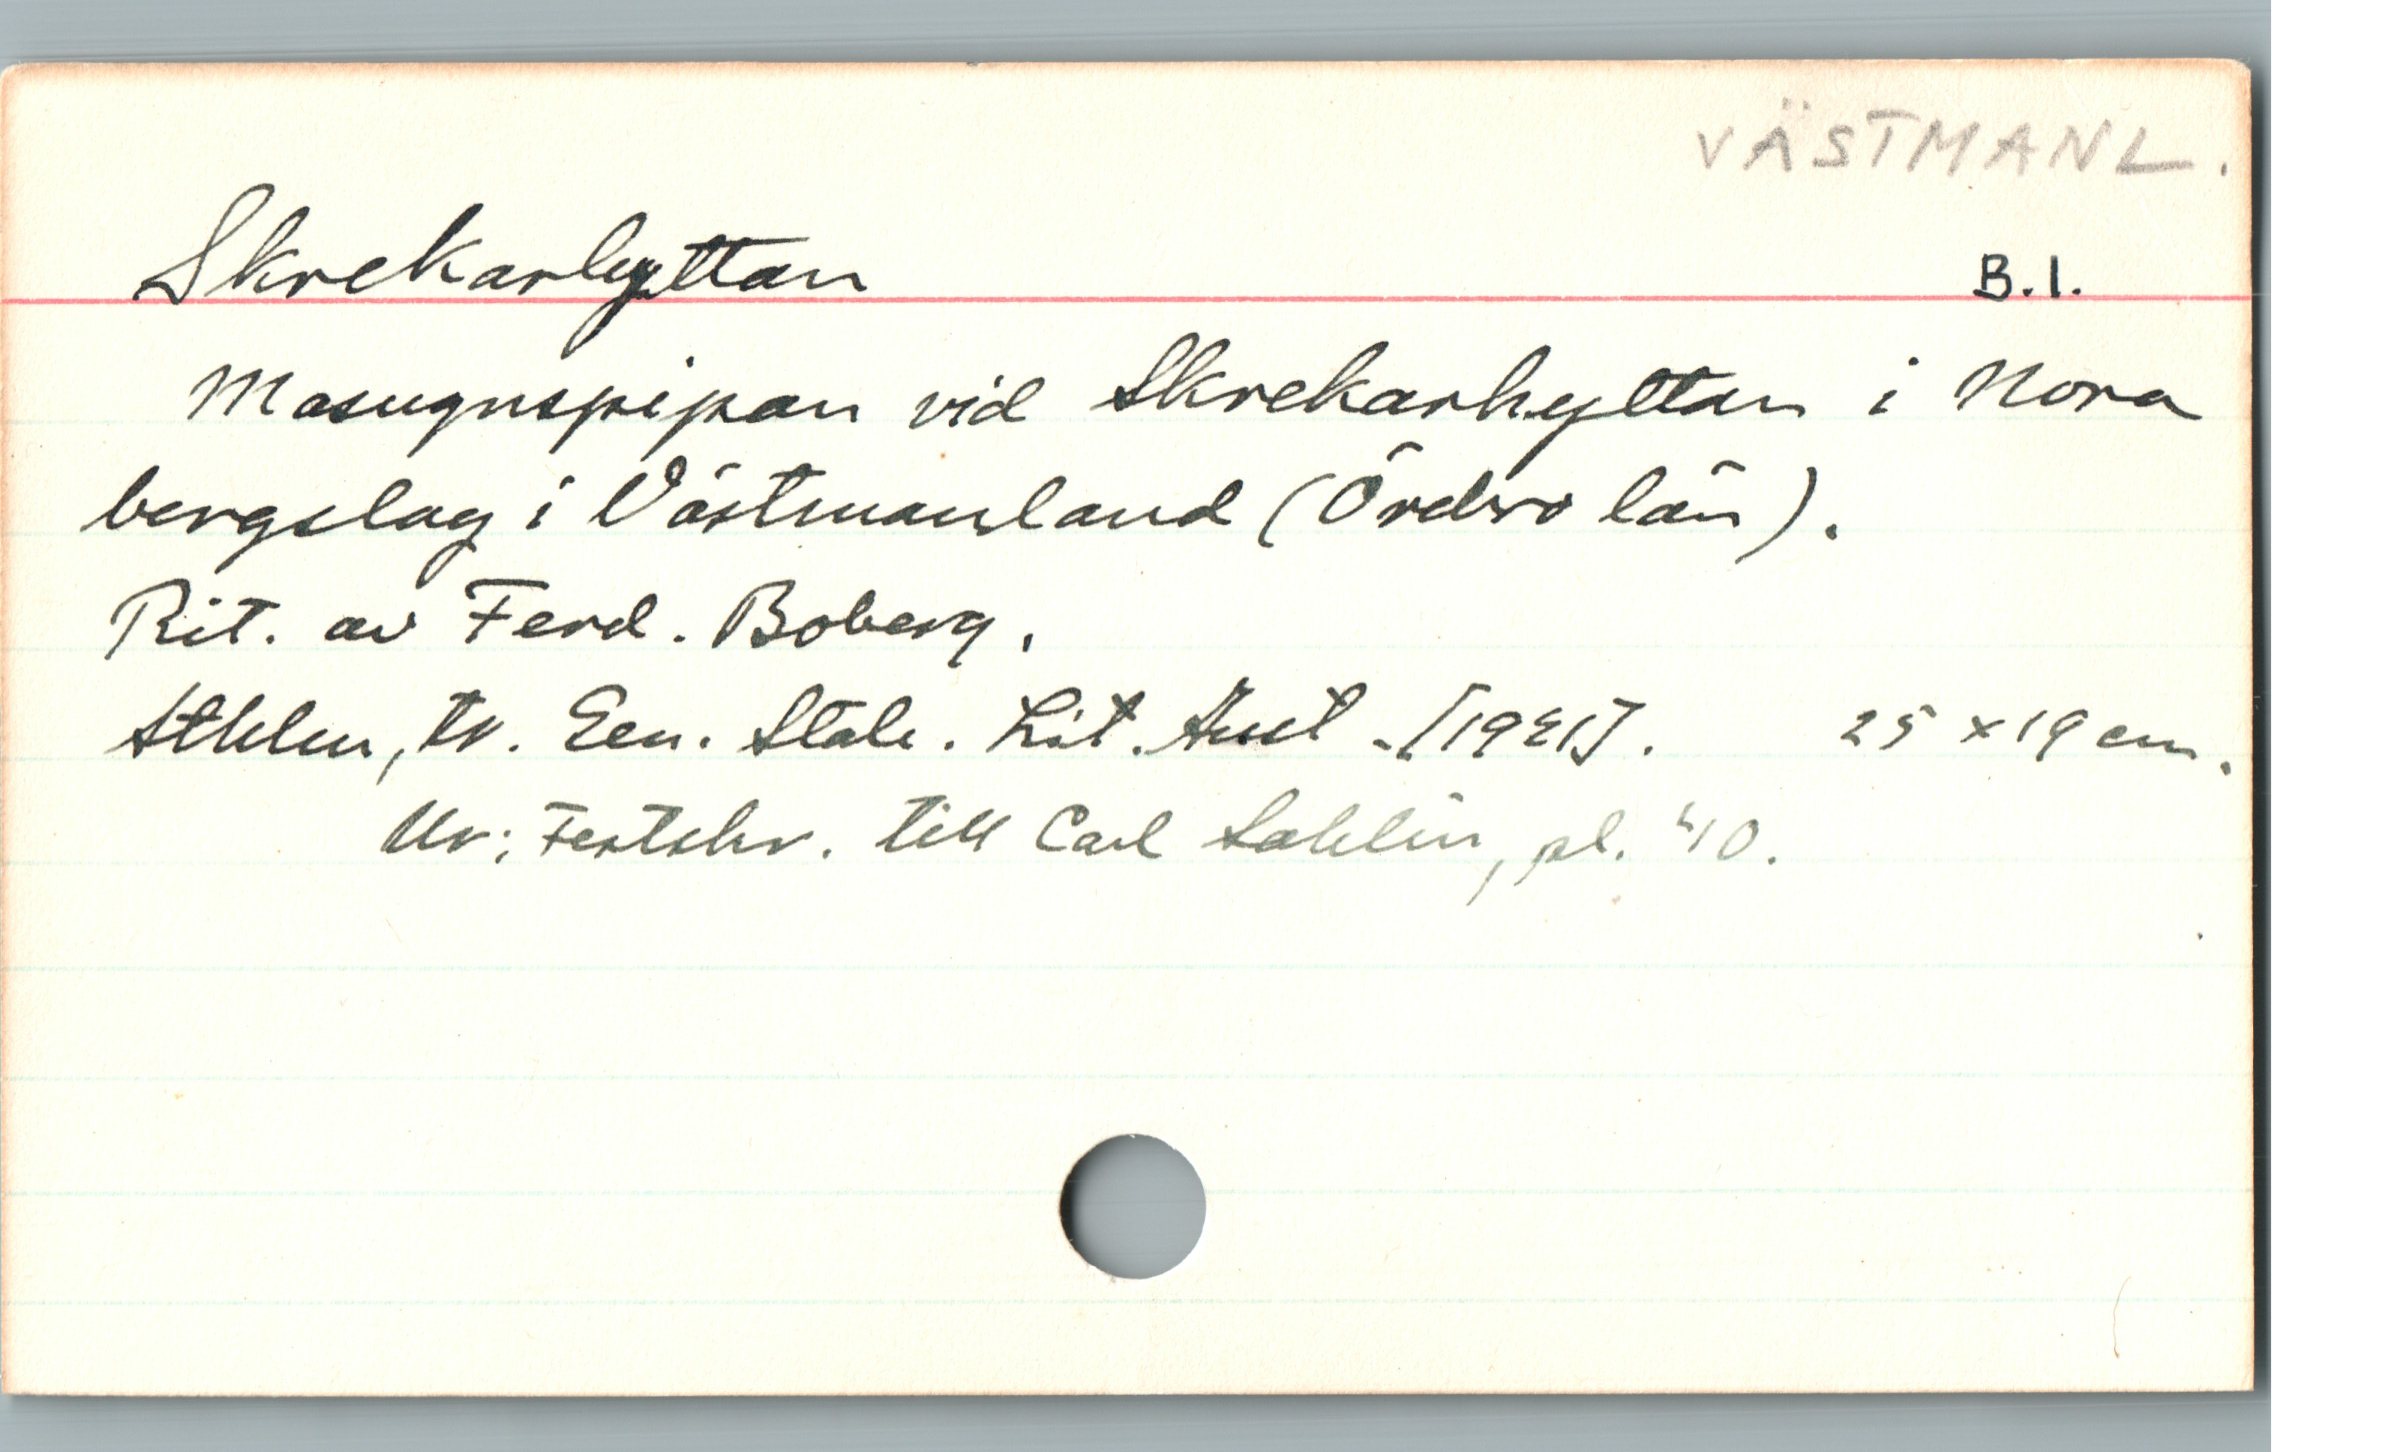 VÄSTMANL.
Skrekarhyttan B.1.
Masugnspipan vid Skrekarhyttan i Nora
bergslag i Västmanland (Örebro län).
Rit. av Ferd. Boberg.
Sthlm, tr. Gen. Stab. Lit. Anst. [1921]. 25 x 19 cm.
Ur: Festskr. till Carl Sahlin, pl. 40.